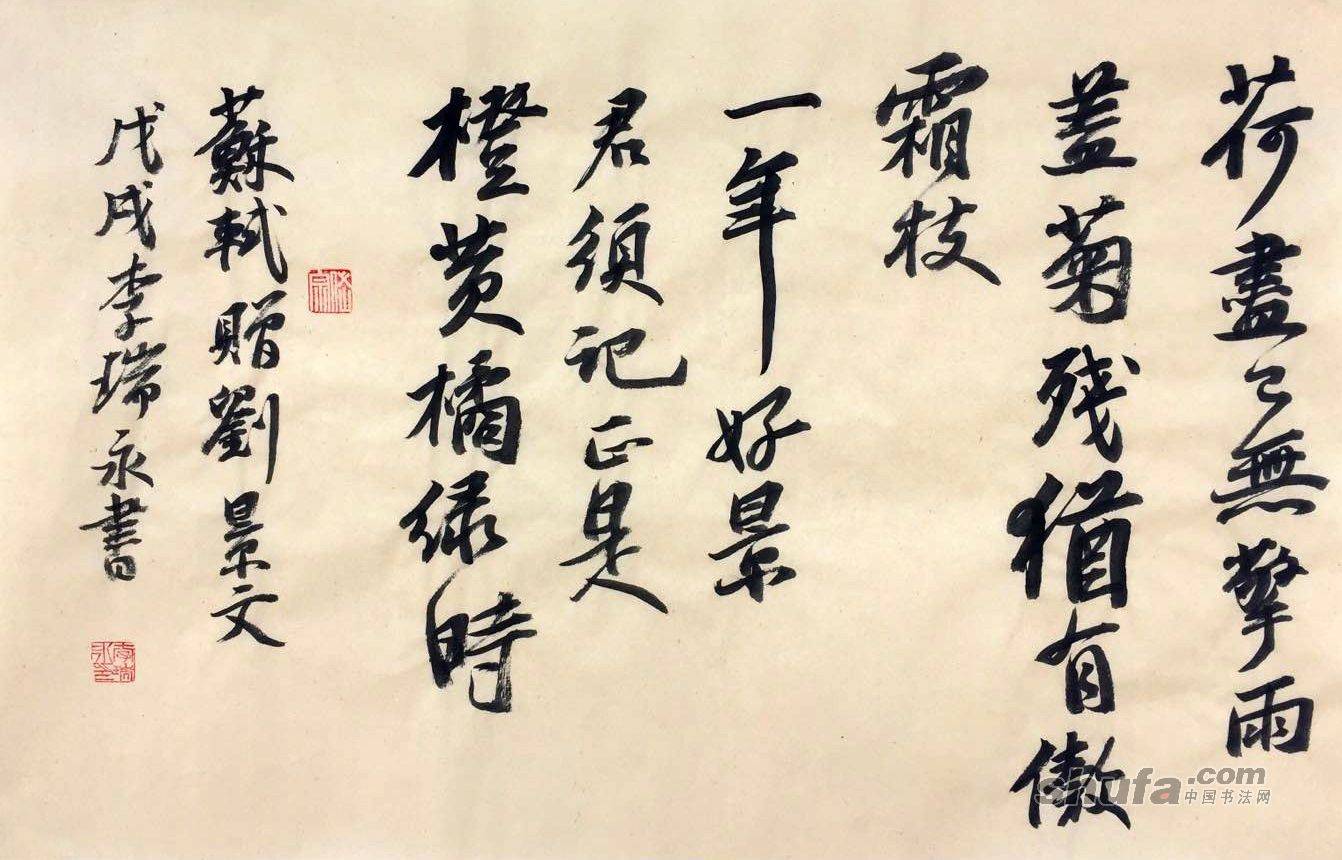 荷盡已無擎雨
蓋菊残猶有傲
霜枝
一年好景
君須记正是
橙黄橘绿時
蘇軾贈劉景文
戊戌李瑞永書
shufa.com
中国书法网